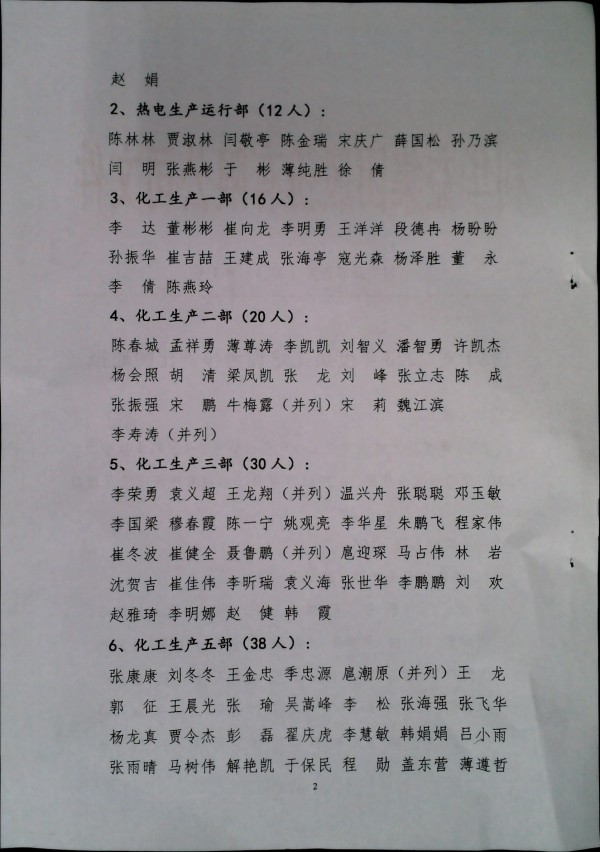 赵 娟
2、热电生产运行部（12人）：
陈林林 贾淑林 闫敬亭 陈金瑞 宋庆广 薛国松 孙乃滨
闫 明 张燕彬 于 彬 薄纯胜 徐 倩
3、化工生产一部（16人）：
李 达 董彬彬 崔向龙 李明勇 王洋洋 段德冉 杨盼盼
孙振华 崔吉喆 王建成 张海亭 寇光森 杨泽胜 董 永
李 倩 陈燕玲
4、化工生产二部（20人）：
陈春城 孟祥勇 薄尊涛 李凯凯 刘智义 潘智勇 许凯杰
杨会照 胡 清 梁凤凯 张 龙 刘 峰 张立志 陈 成
张振强 宋 鹏 牛梅露（并列）宋 莉 魏江滨
李寿涛（并列）
5、化工生产三部（30人）：
李荣勇 袁义超 王龙翔（并列）温兴舟 张聪聪 邓玉敏
李国梁 穆春霞 陈一宁 姚观亮 李华星 朱鹏飞 程家伟
崔冬波 崔健全 聂鲁鹏（并列）扈迎琛 马占伟 林 岩
沈贺吉 崔佳伟 李昕瑞 袁义海 张世华 李鹏鹏 刘 欢
赵雅琦 李明娜 赵 健 韩 霞
6、化工生产五部（38人）：
张康康 刘冬冬 王金忠 季忠源 扈潮原（并列）王 龙
郭 征 王晨光 张 瑜 吴嵩峰 李 松 张海强 张飞华
杨龙真 贾令杰 彭 磊 翟庆虎 李慧敏 韩娟娟 吕小雨
张雨晴 马树伟 解艳凯 于保民 程 勋 盖东营 薄遵哲
2